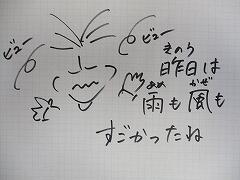 ビュー
ビュー
きのう
昨日は
あめ かぜ
雨も風も
すごかったね